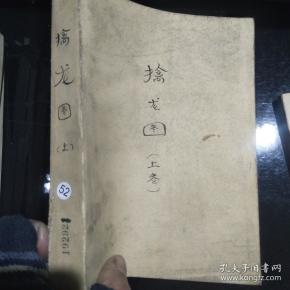 擒
龙
图
(上)
52
擒
龙
图
(上卷)
孔夫子旧书网